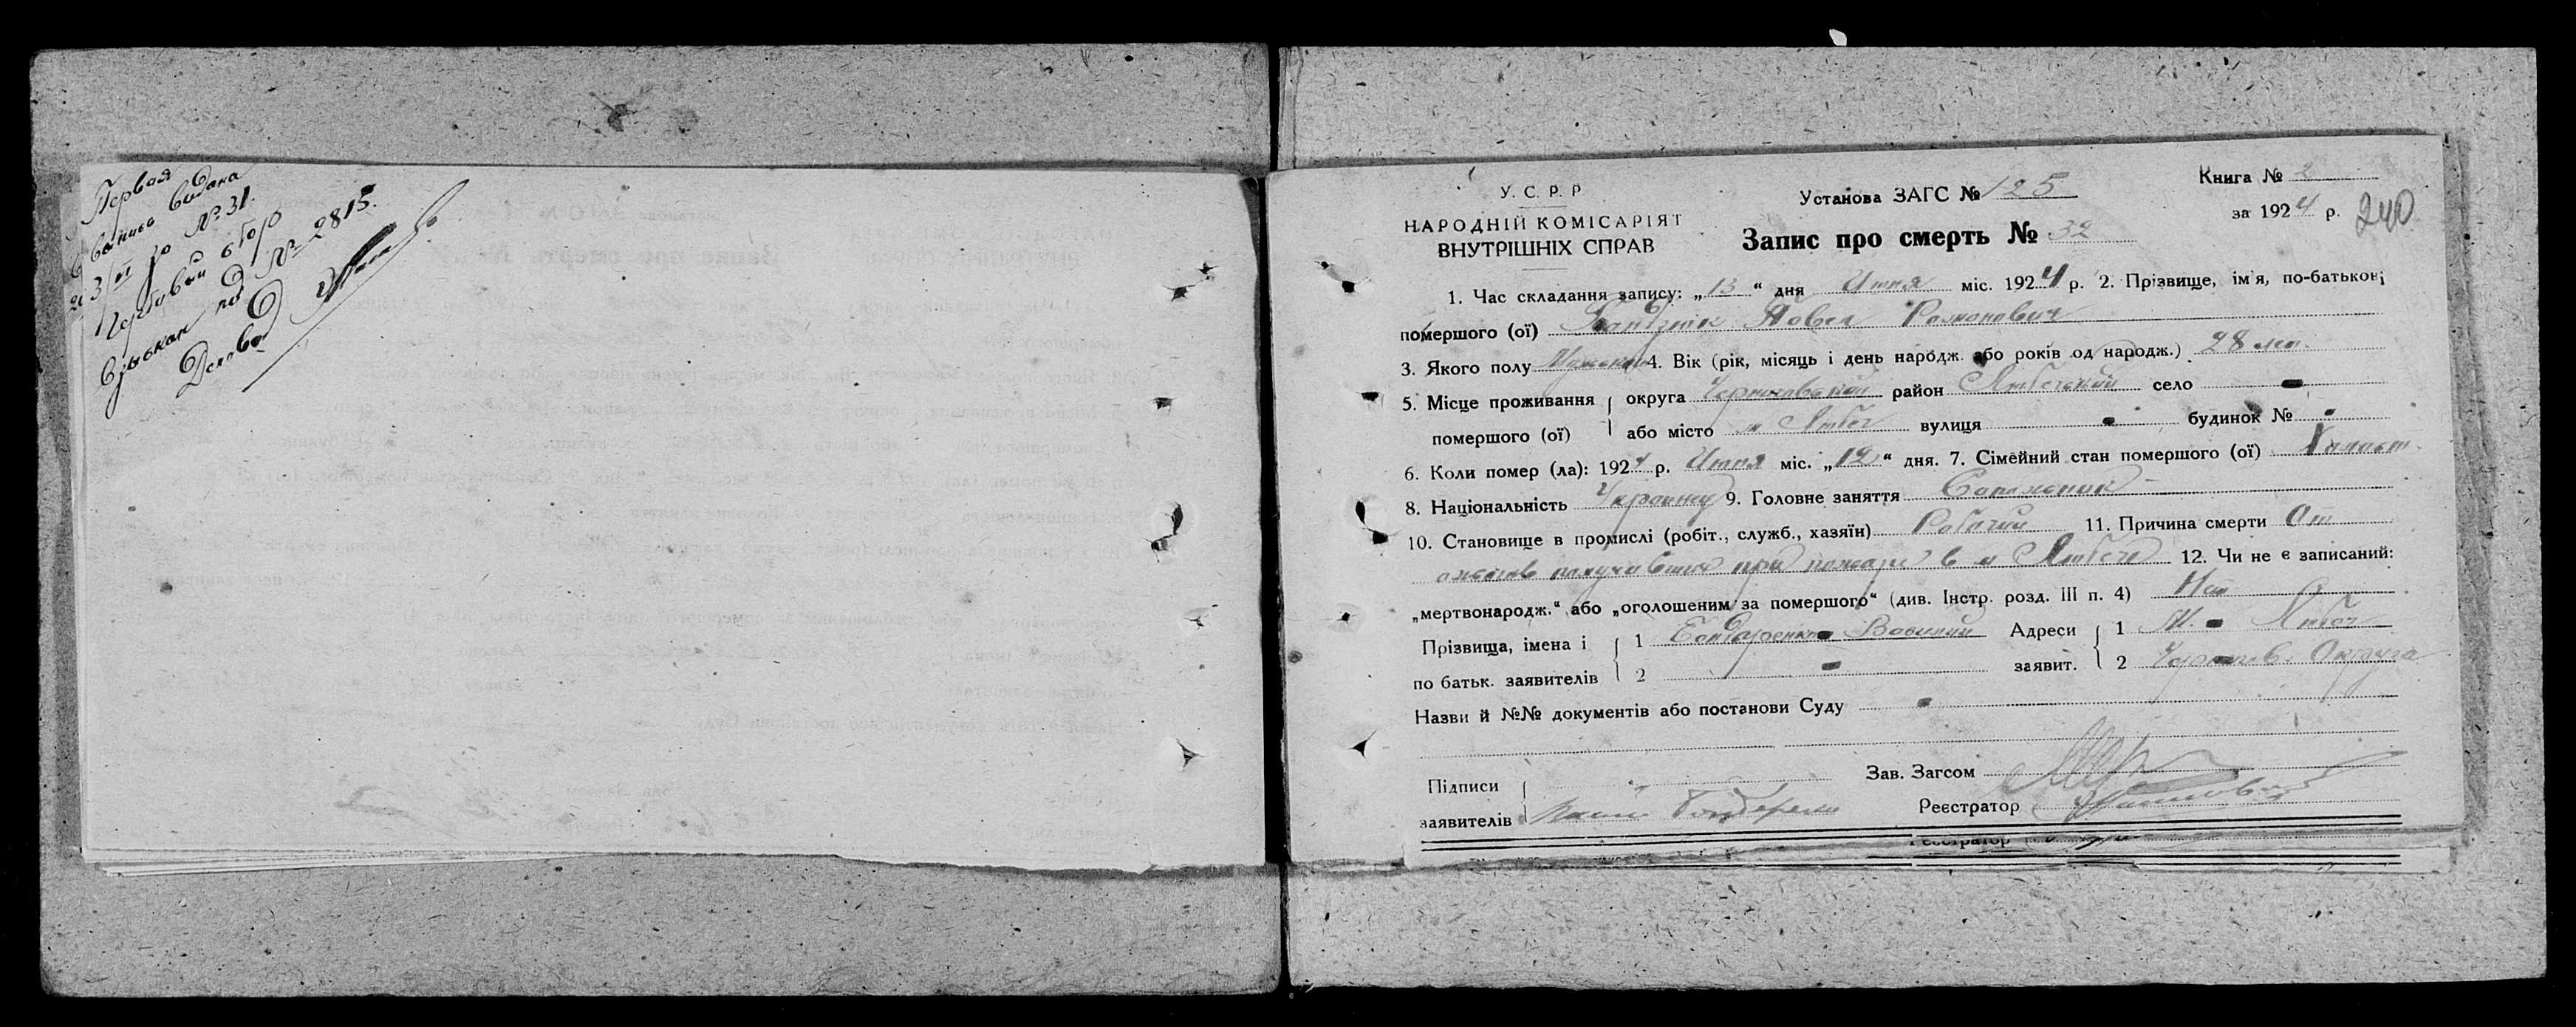 Первая
выпись выдана
3/VI за № 31.
Гербовый сбор
взыскан под № 2815.
Деловод
У. С. Р. Р.
НАРОДНІЙ КОМІСАРІЯТ
ВНУТРІШНІХ СПРАВ
Установа ЗАГС № 125
Книга № 2
за 1924 р. 240
Запис про смерть № 32
1. Час складання запису: „13“ дня Июня міс. 1924 р. 2. Прізвище, ім'я, по-батькові
помершого (ої) Павел Романович
3. Якого полу Мужской 4. Вік (рік, місяць і день народж. або років од народж.) 28 лет.
5. Місце проживання помершого (ої) округа Черниговской район село
або місто м вулиця будинок №
6. Коли помер (ла): 1924 р. Июня міс. „12“ дня. 7. Сімейний стан помершого (ої) Холост
8. Національність Украинец 9. Головне заняття Сапожник
10. Становище в промислі (робіт., служб., хазяїн) Рабочий 11. Причина смерти От
ожогов получивших при пожаре в м 12. Чи не є записаний:
„мертвонародж.“ або „оголошеним за помершого“ (див. Інстр. розд. III п. 4) Нет
Прізвища, імена і по батьк. заявителів 1 Бондаренко Василий Адреси заявит. 1 М.
2 2 Чернигов. Округа
Назви й №№ документів або постанови Суду
Підписи заявителів Бондаренко
Зав. Загсом
Реєстратор
Реєстратор